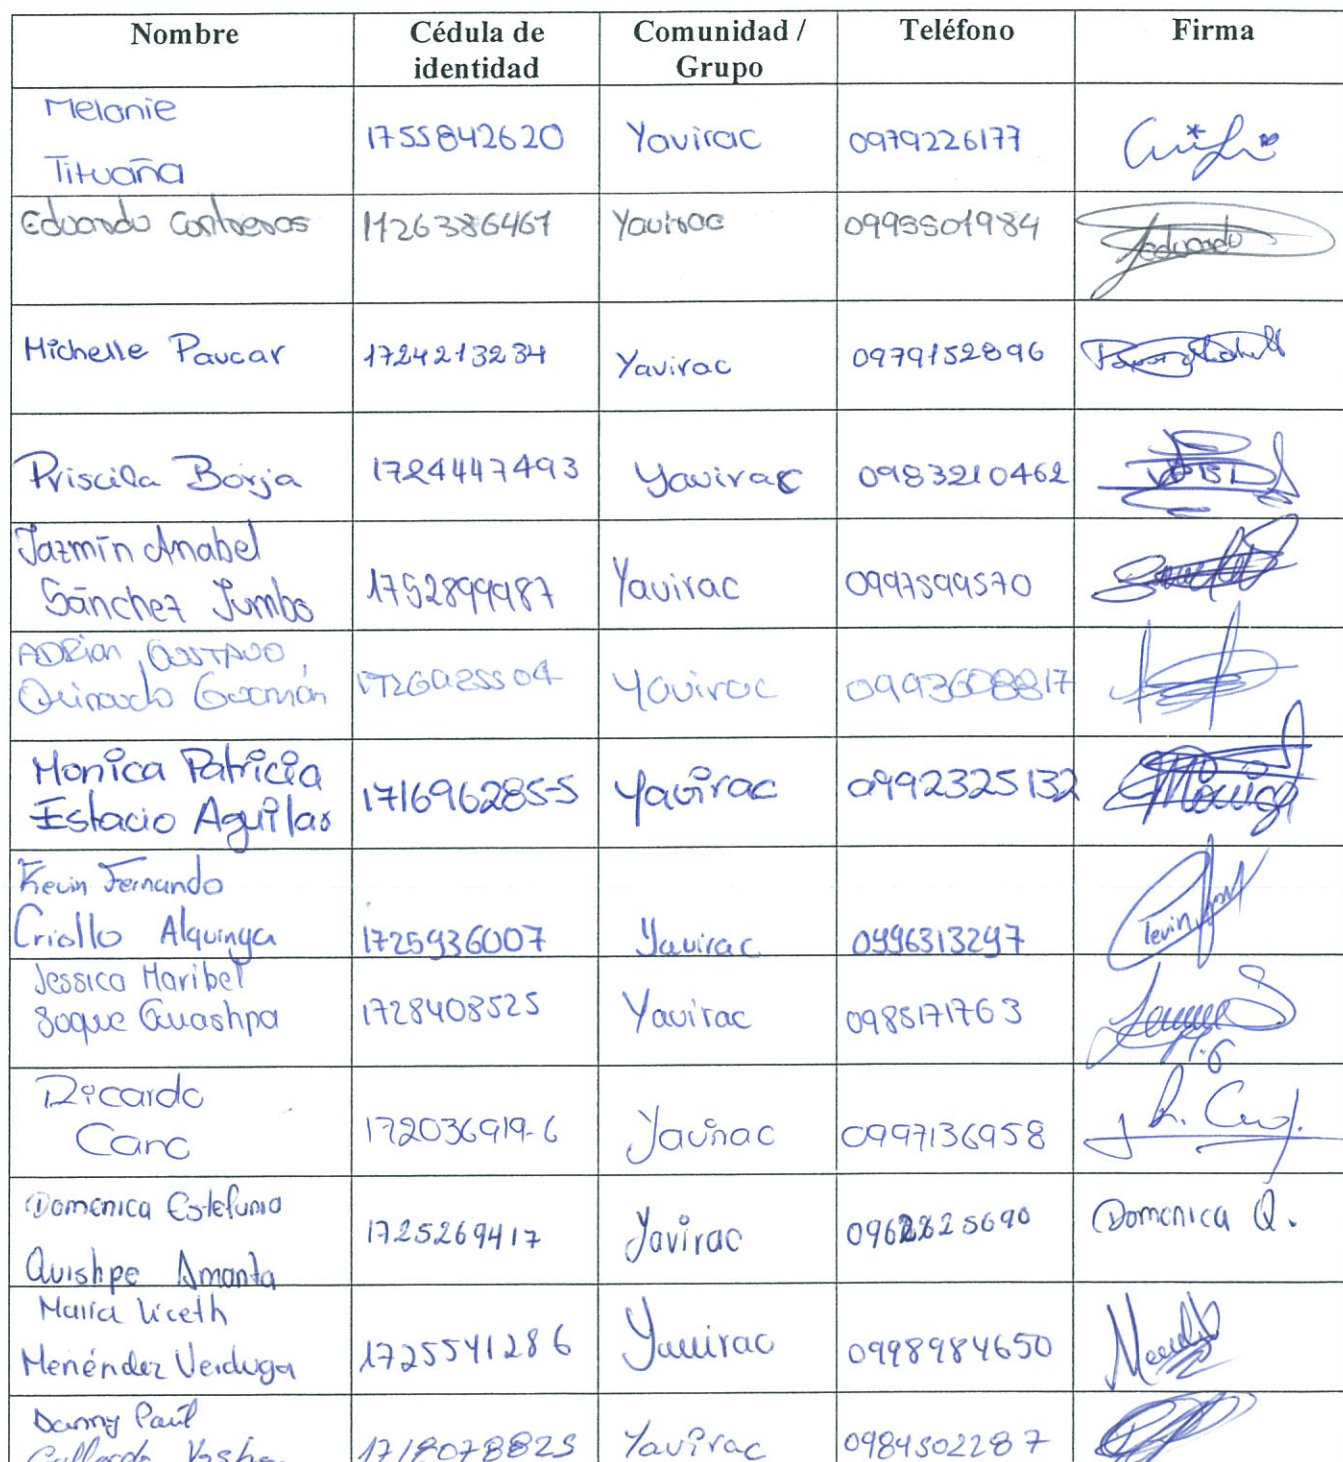 Nombre Cédula de identidad Comunidad / Grupo Teléfono Firma
Melanie
Tituaña 1755842620 Yavirac 0979226177
Eduardo Contreras 1726386461 Yavirac 0995501984 Eduardo
Michelle Paucar 1724213234 Yavirac 0979152896
Priscila Borja 1724447493 Yavirac 0983210462
Jazmín Anabel
Sánchez Jumbo 1752899987 Yavirac 0997599570
ADRian GUSTAVO
Guzmán Yavirac 0993608817
Monica Patricia
Estacio Aguilar 171696285-5 Yavirac 0992325132 Monica
Kevin Fernando
Criollo Alquinga 1725936007 Yavirac 0996313297 Kevin
Jessica Maribel
Soque Guashpa 1728408525 Yavirac 0985171763
Ricardo
Caro 172036919-6 Yavirac 0997136958
Domenica Estefania
Quishpe Amanta 1725269417 Yavirac Domenica Q.
Maria Liceth
Menéndez Verduga 1725541286 Yavirac 0998984650
Danny Paúl
1718078825 Yavirac 0984502287